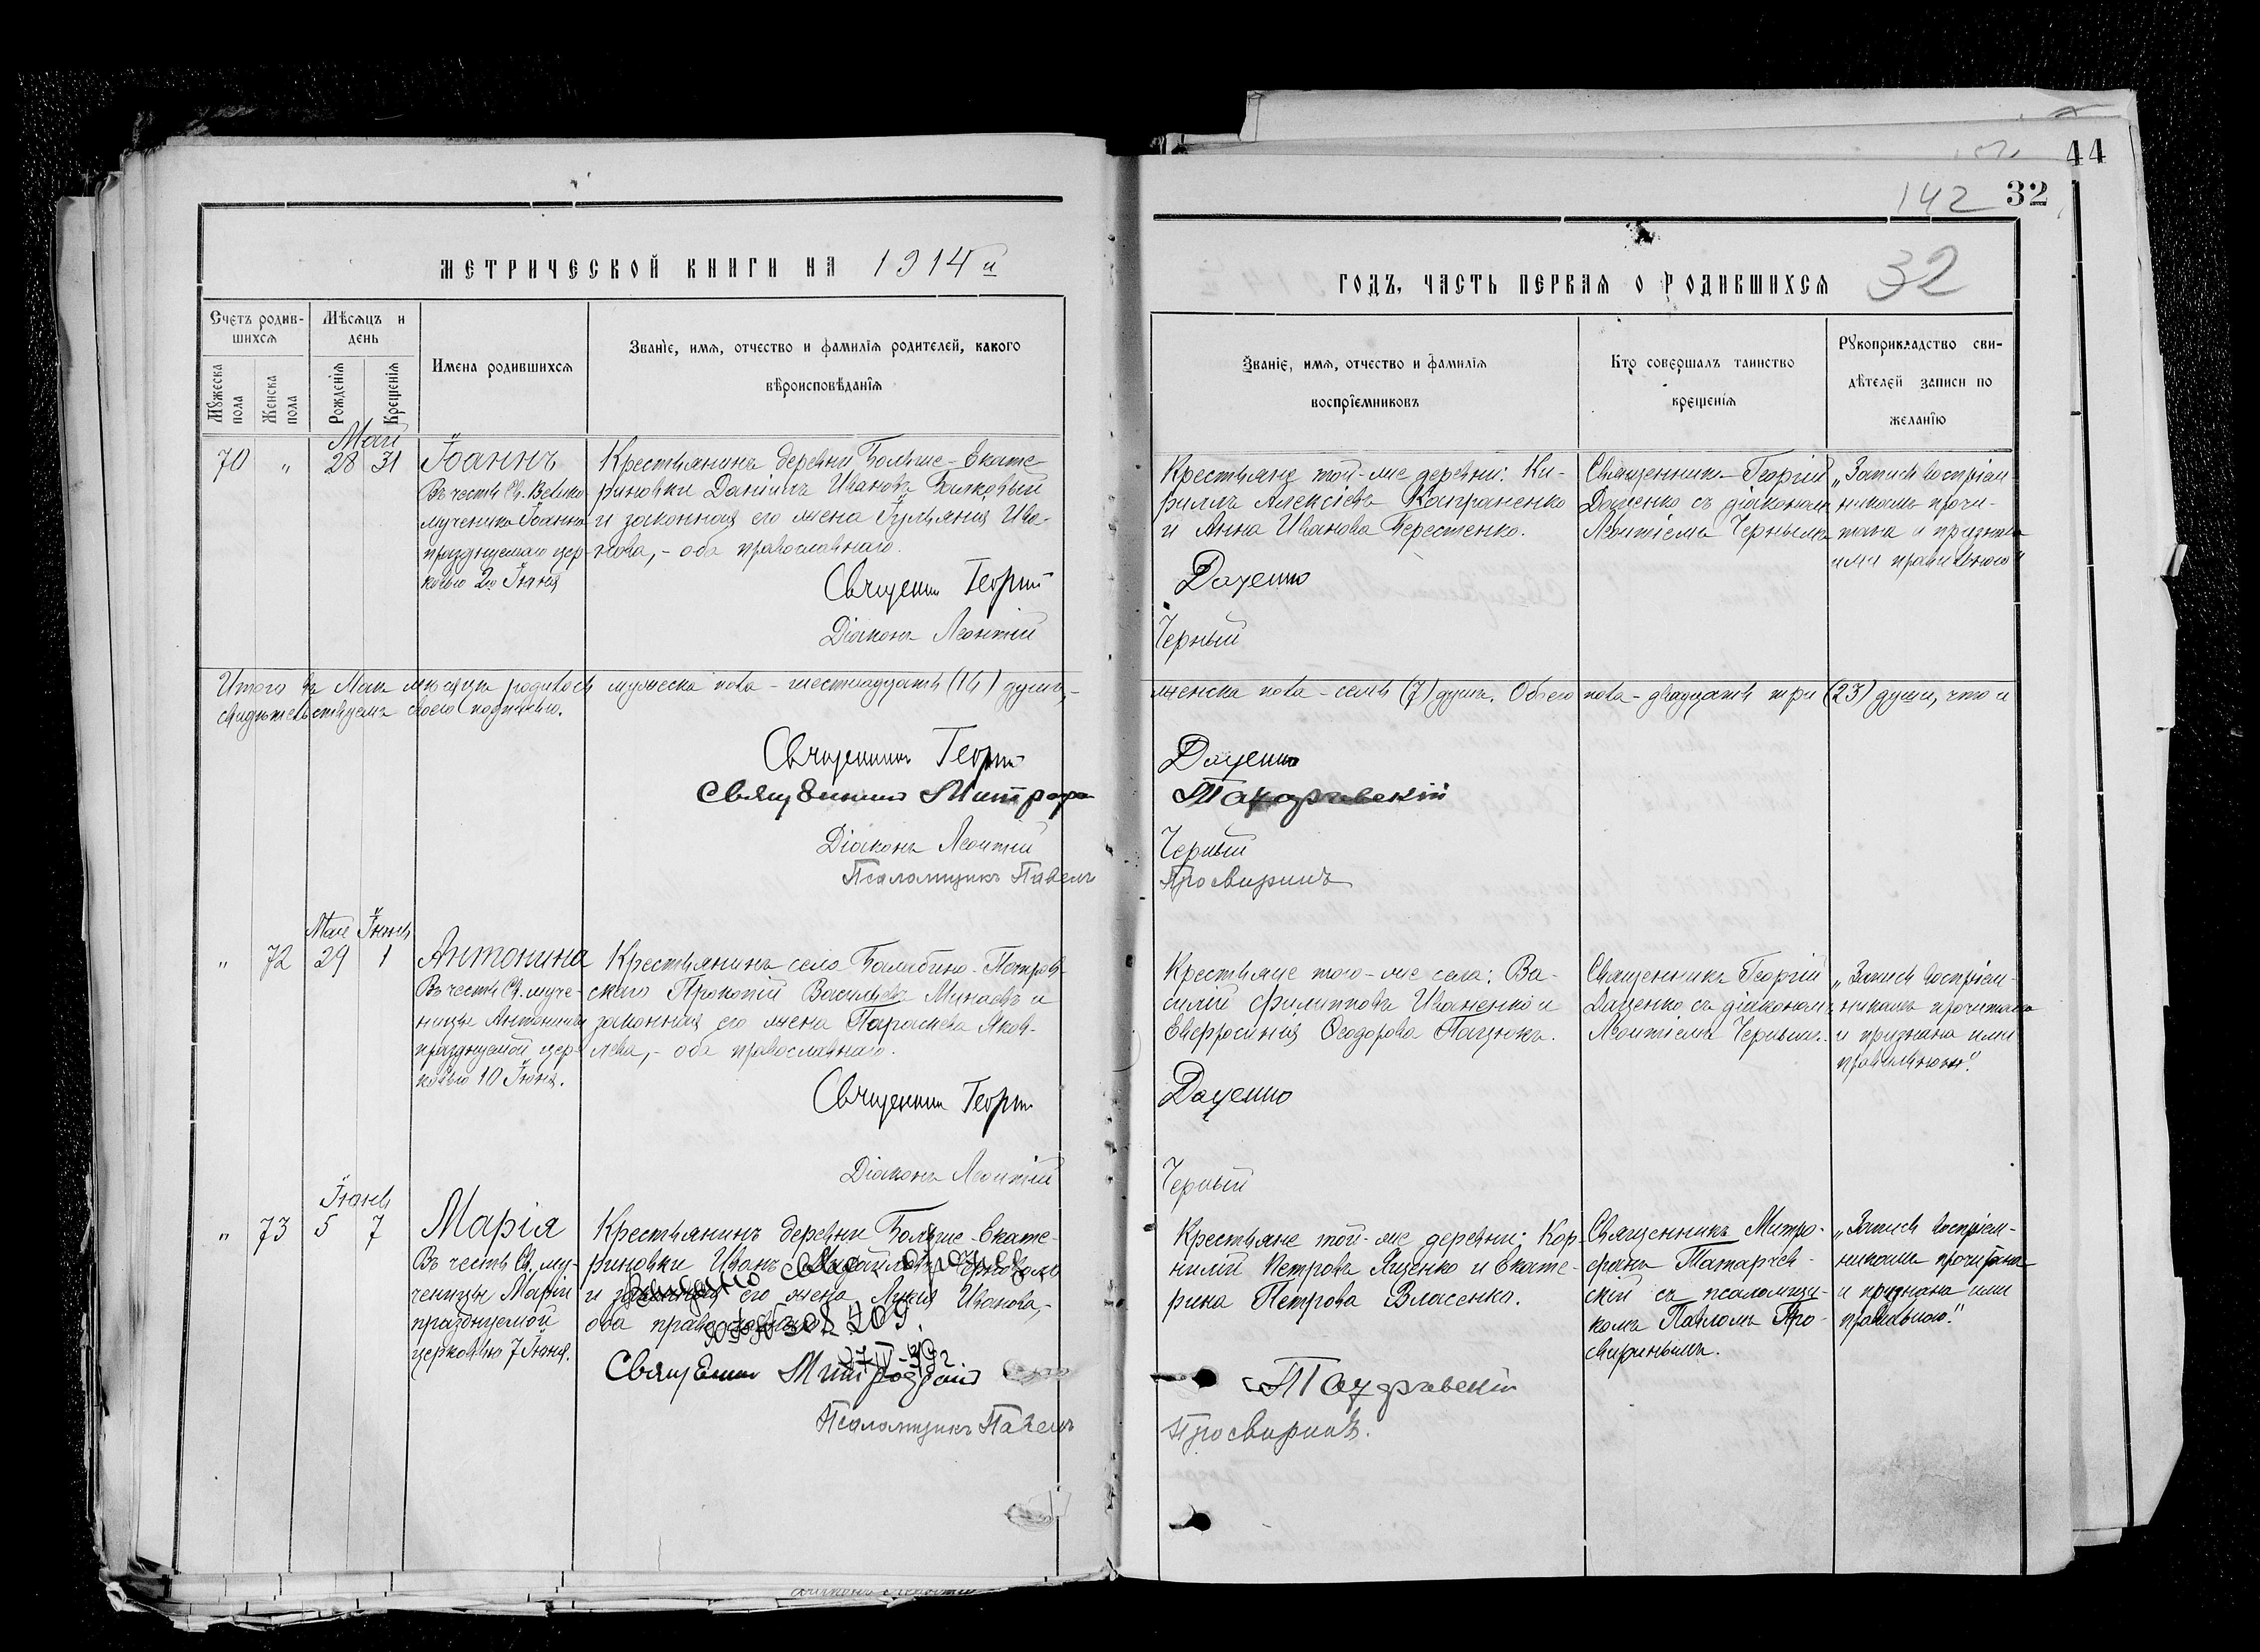 44
142 32
МЕТРИЧЕСКОЙ КНИГИ НА 1914й
ГОДЪ, ЧАСТЬ ПЕРВАЯ О РОДИВШИХСЯ 32
Счетъ родив-
шихся
Мужеска пола
Женска пола
Мѣсяцъ и
день
Рожденія
Крещенія
Имена родившихся
Званіе, имя, отчество и фамилія родителей, какого
вѣроисповѣданія
Званіе, имя, отчество и фамилія
воспріемниковъ
Кто совершалъ таинство
крещенія
Рукоприкладство сви-
дѣтелей записи по
желанію
Май
70 " 28 31
Іоаннъ
Въ честь Св. Велико
мученика Іоанна
празднуемаго цер-
ковью 2го Іюня
Крестьянинъ деревни Больше-Екате
риновки Даніилъ Ивановъ
и законная его жена Іуліанія Ива-
нова,- оба православнаго.
Священникъ Георгій
Діаконъ Леонтій
Крестьяне той-же деревни: Ки-
риллъ Алексіевъ Капраненко
и Анна Иванова Берестенко.
Даценко
Черный
Священникъ Георгій
Даценко съ діакономъ
Леонтіемъ Чернымъ
„Запись воспріем
никамъ прочи-
тана и признана
ими правильною"
Итого въ Маѣ мѣсяцѣ родилось мужеска пола - шестнадцать (16) душъ,- женска пола - семь (7) душъ. Обоего пола - двадцать три (23) души, что и
свидѣтельствуемъ своею подписью.
Священникъ Георгій Даценко
Священникъ Митроф
Діаконъ Леонтій Черный
Псаломщикъ Павелъ Просвиринъ
Май Іюнь
" 72 29 1
Антонина
Въ честь Св. муче-
ницы Антонины
празднуемой цер-
ковью 10 Іюня.
Крестьянинъ села Балабино-Петров-
скаго Прокопій Васильевъ Минаевъ и
законная его жена Параскева Яков-
лева,- оба православнаго.
Священникъ Георгій
Діаконъ Леонтій
Крестьяне того-же села: Ва-
силій Филипповъ Иваненко и
Евфросинія Ѳеодорова Пацюкъ.
Даценко
Черный
Священникъ Георгій
Даценко съ діакономъ
Леонтіемъ Чернымъ.
„Запись воспріем-
никамъ прочитана
и признана ими
правильною".
Іюнь
" 73 5 7
Марія
Въ честь Св. му-
ченицы Маріи
празднуемой
церковью 7 Іюня.
Крестьянинъ деревни Больше-Екате-
риновки Иванъ Михайловъ
и законная его жена Лукія Иванова,-
оба православнаго.
Священникъ Митрофанъ
Псаломщикъ Павелъ
Крестьяне той-же деревни: Кор-
нилій Петровъ Яценко и Екате-
рина Петрова Власенко.
Просвиринъ.
Священникъ Митро-
фанъ Татарчев-
скій съ псаломщи-
комъ Павломъ Про-
свиринымъ.
„Запись воспріем-
никамъ прочитана
и признана ими
правильною".